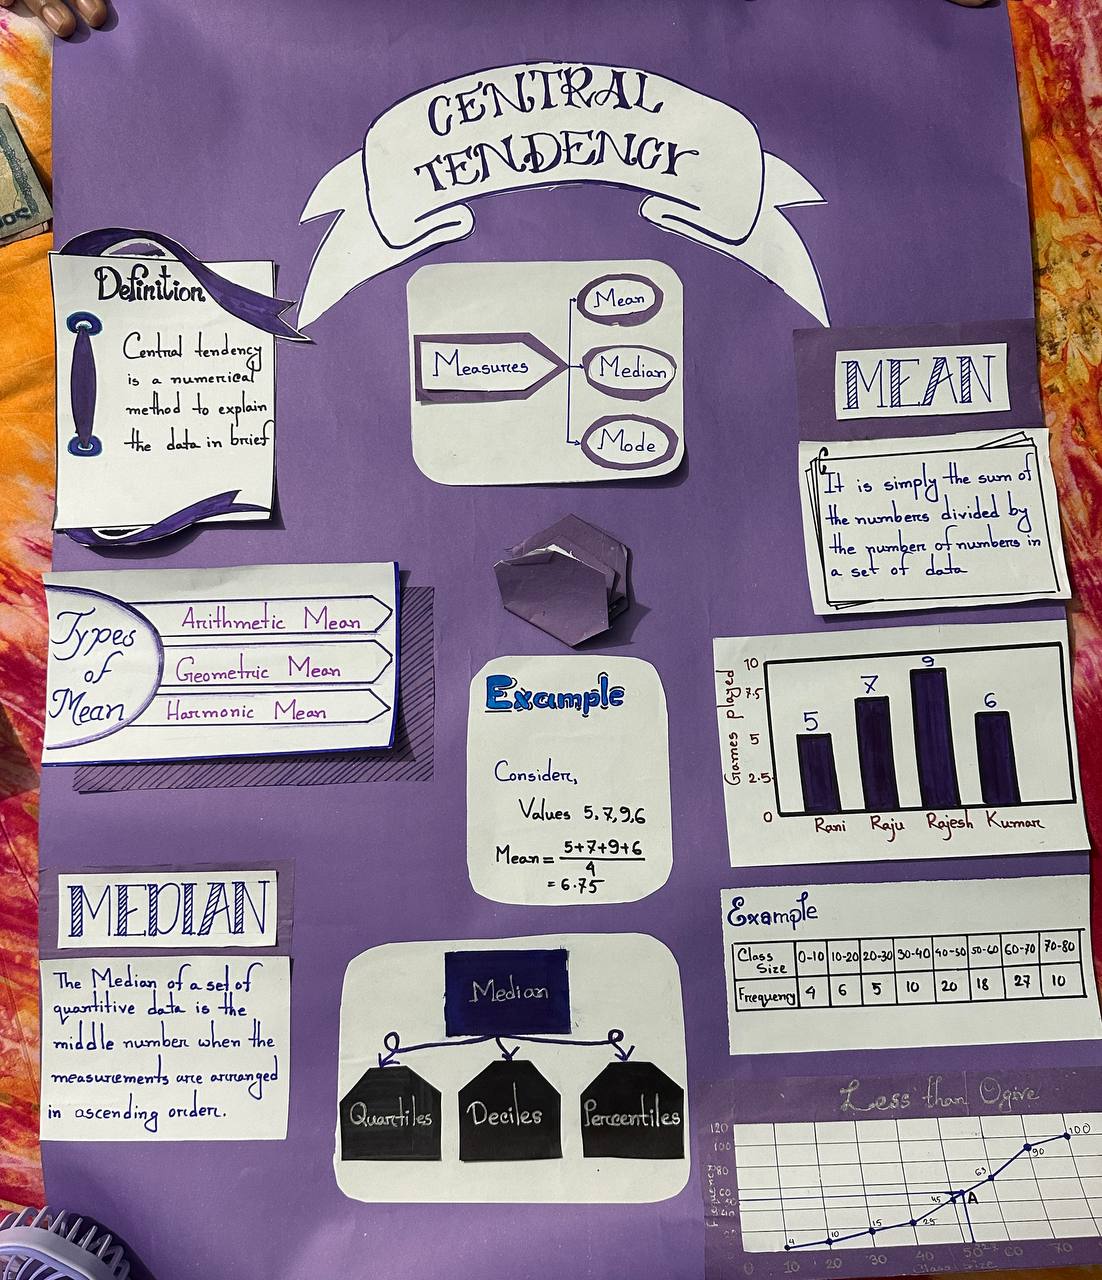 CENTRAL
TENDENCY
Definition
Central tendency
is a numerical
method to explain
the data in brief
Measures
Mean
Median
Mode
MEAN
It is simply the sum of
the numbers divided by
the number of numbers in
a set of data
Types
of
Mean
Arithmetic Mean
Geometric Mean
Harmonic Mean
Example
Consider,
Values 5,7,9,6
Mean = 5+7+9+6
4
= 6.75
Games played
10
7.5
5
2.5
0
5
7
9
6
Rani Raju Rajesh Kumar
MEDIAN
The Median of a set of
quantitive data is the
middle number when the
measurements are arranged
in ascending order.
Median
Quartiles
Deciles
Percentiles
Example
Class Size 0-10 10-20 20-30 30-40 40-50 50-60 60-70 70-80
Frequency 4 6 5 10 20 18 27 10
Less than Ogive
120
100
80
60
4
10
15
25
45
A
63
90
100
0 10 20 30 40 60 70
Class Size